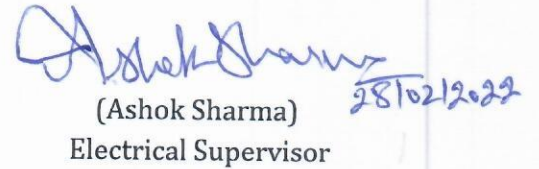 Ashok Sharma
28/02/2022
(Ashok Sharma)
Electrical Supervisor